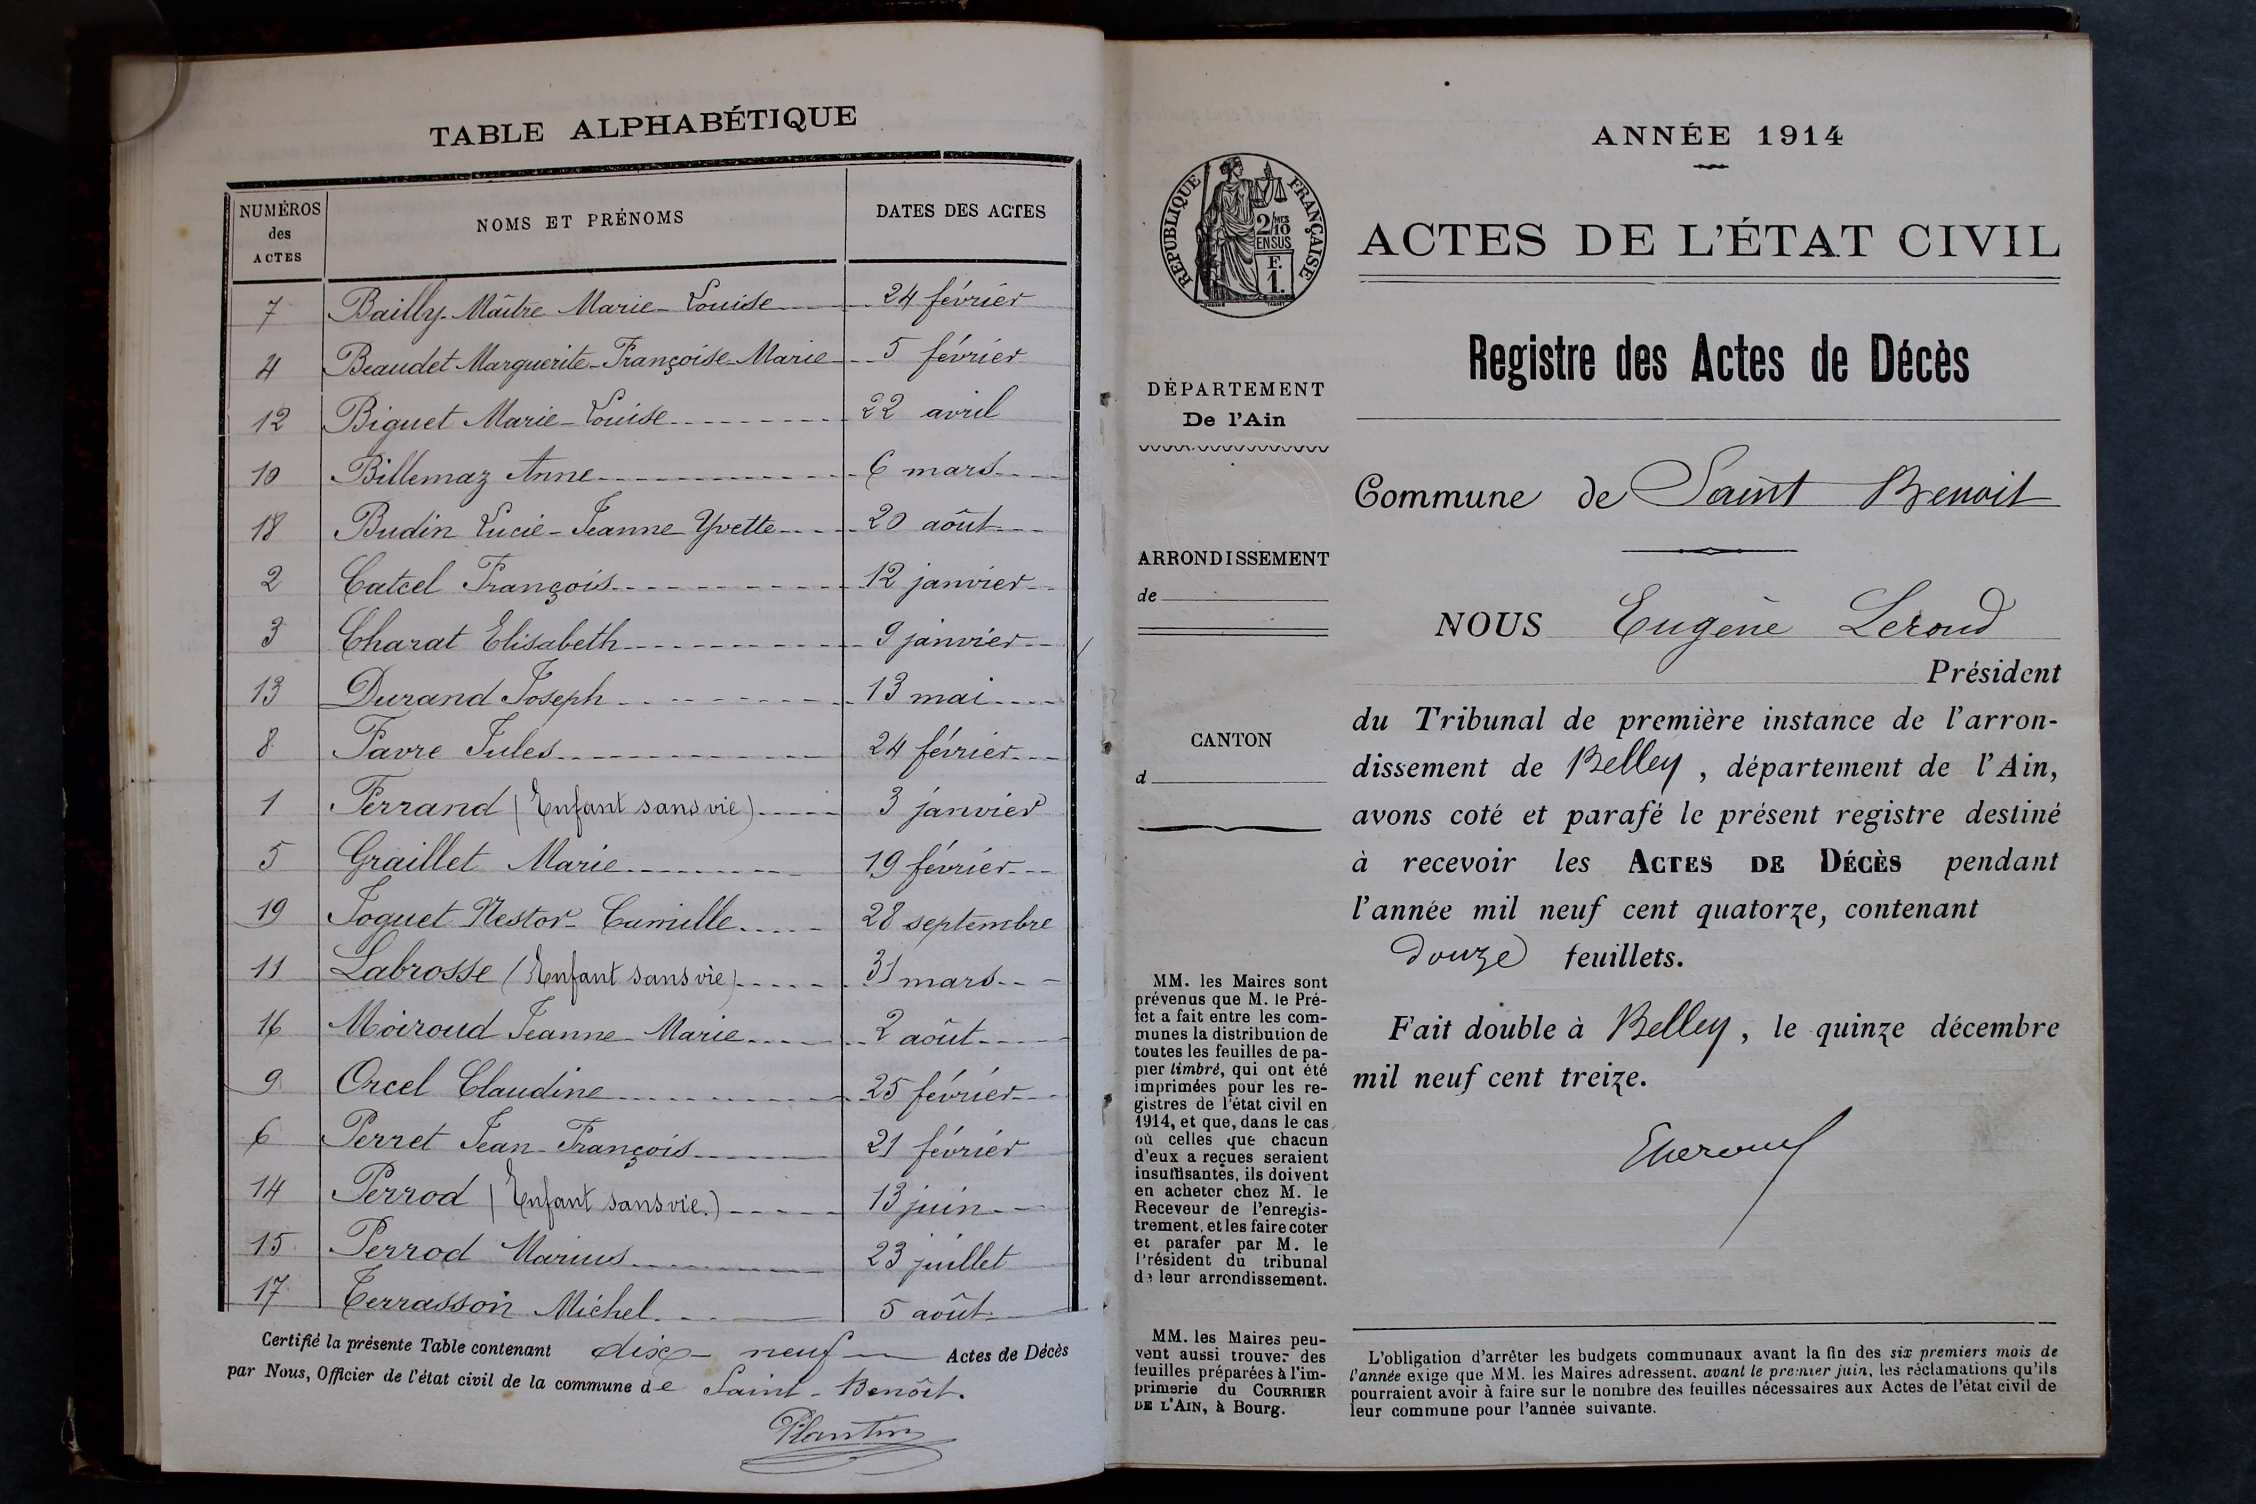 TABLE ALPHABÉTIQUE
NUMÉROS des ACTES NOMS ET PRÉNOMS DATES DES ACTES
7 Bailly-Maître Marie-Louise 24 février
4 Beaudet Marguerite-Françoise-Marie 5 février
12 Biguet Marie-Louise 22 avril
10 Billemaz Anne 6 mars
18 Budin Lucie-Jeanne Yvette 20 août
2 Catcel François 12 janvier
3 Charat Elisabeth 9 janvier
13 Durand Joseph 13 mai
8 Favre Jules 24 février
1 Ferrand (Enfant sans vie) 3 janvier
5 Graillet Marie 19 février
19 Joguet Nestor-Camille 28 septembre
11 Labrosse (Enfant sans vie) 31 mars
16 Moiroud Jeanne-Marie 2 août
9 Orcel Claudine 25 février
6 Perret Jean-François 21 février
14 Perrod (Enfant sans vie.) 13 juin
15 Perrod Marius 23 juillet
17 Terrasson Michel 5 août
Certifié la présente Table contenant dix-neuf Actes de Décès
par Nous, Officier de l'état civil de la commune de Saint-Benôit.
Plantin
RÉPUBLIQUE FRANÇAISE
2/10 MES
EN SUS
F.
1.
DÉPARTEMENT
De l'Ain
ARRONDISSEMENT
de
CANTON
d
MM. les Maires sont
prévenus que M. le Pré-
fet a fait entre les com-
munes la distribution de
toutes les feuilles de pa-
pier timbré, qui ont été
imprimées pour les re-
gistres de l'état civil en
1914, et que, dans le cas
où celles que chacun
d'eux a reçues seraient
insuffisantes, ils doivent
en acheter chez M. le
Receveur de l'enregis-
trement, et les faire coter
et parafer par M. le
Président du tribunal
de leur arrondissement.
MM. les Maires peu-
vent aussi trouver des
feuilles préparées à l'im-
primerie du COURRIER
DE L'AIN, à Bourg.
ANNÉE 1914
ACTES DE L'ÉTAT CIVIL
Registre des Actes de Décès
Commune de Saint Benoit
NOUS Eugène Leroud
Président
du Tribunal de première instance de l'arron-
dissement de Belley, département de l'Ain,
avons coté et parafé le présent registre destiné
à recevoir les ACTES DE DÉCÈS pendant
l'année mil neuf cent quatorze, contenant
douze feuillets.
Fait double à Belley, le quinze décembre
mil neuf cent treize.
L'obligation d'arrêter les budgets communaux avant la fin des six premiers mois de
l'année exige que MM. les Maires adressent, avant le premier juin, les réclamations qu'ils
pourraient avoir à faire sur le nombre des feuilles nécessaires aux Actes de l'état civil de
leur commune pour l'année suivante.